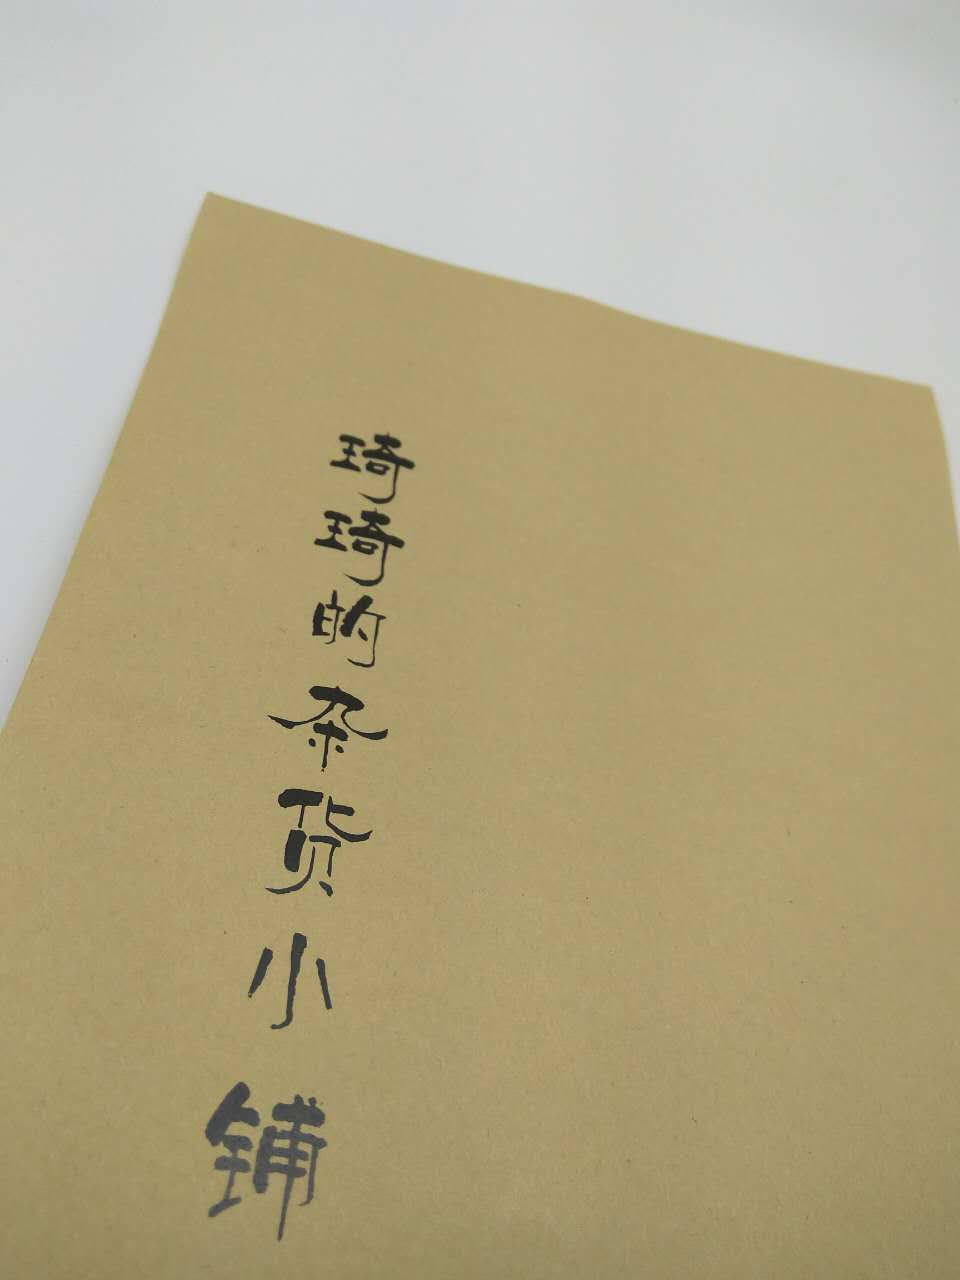 琦琦的杂货小铺